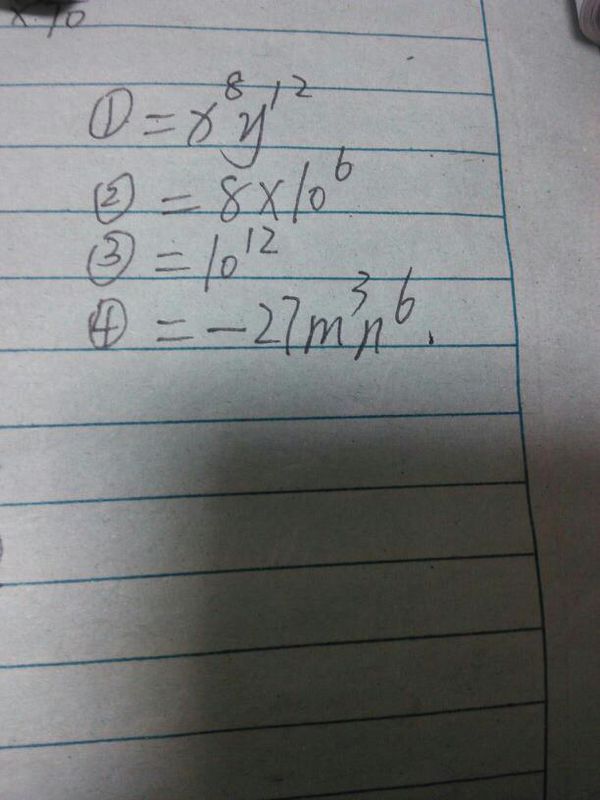 x10
① = x⁸y¹²
② = 8×10⁶
③ = 10¹²
④ = -27m³n⁶.